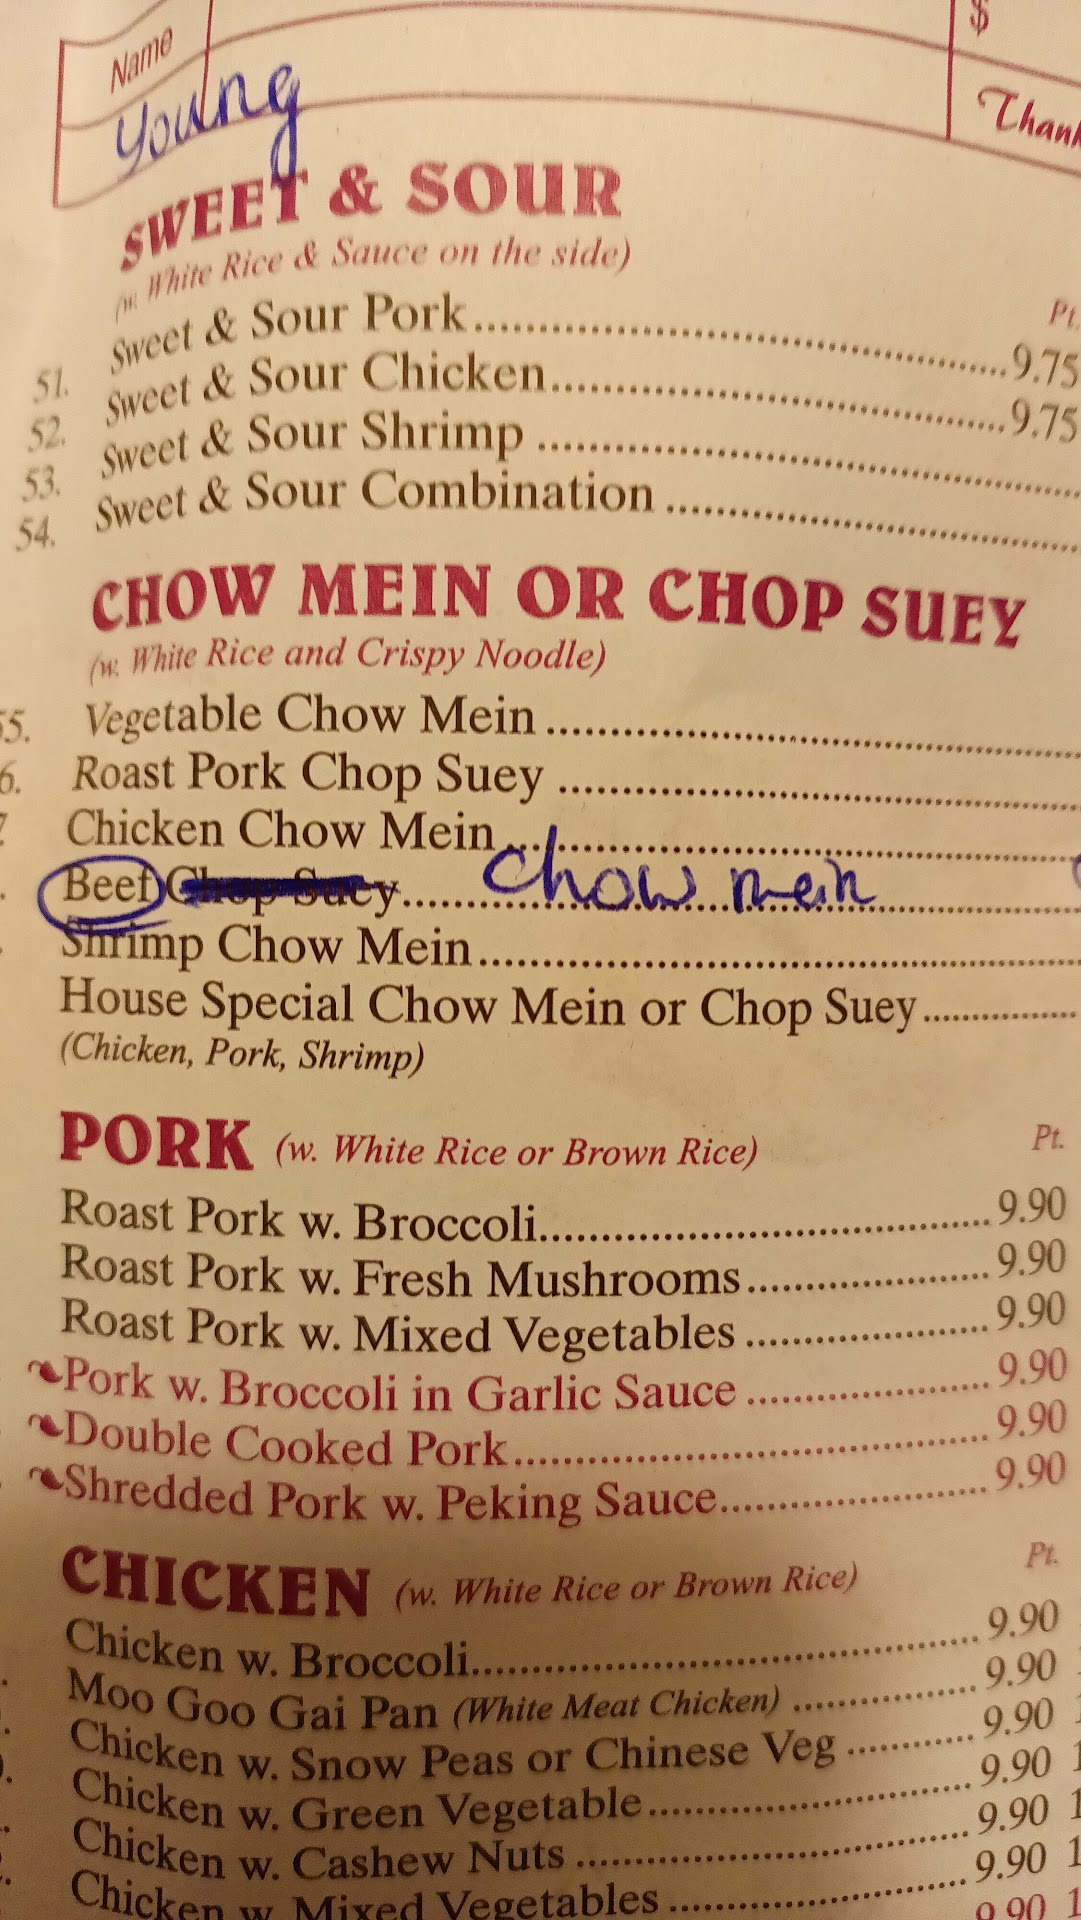 Name
$
Young
Thank
SWEET & SOUR
(w. White Rice & Sauce on the side)
Pt.
51. Sweet & Sour Pork..........9.75
52. Sweet & Sour Chicken..........9.75
53. Sweet & Sour Shrimp..........
54. Sweet & Sour Combination..........
CHOW MEIN OR CHOP SUEY
(w. White Rice and Crispy Noodle)
55. Vegetable Chow Mein..........
6. Roast Pork Chop Suey..........
7 Chicken Chow Mein..........
Beef Chop Suey.......... Chow mein
Shrimp Chow Mein..........
House Special Chow Mein or Chop Suey..........
(Chicken, Pork, Shrimp)
PORK (w. White Rice or Brown Rice) Pt.
Roast Pork w. Broccoli..........9.90
Roast Pork w. Fresh Mushrooms..........9.90
Roast Pork w. Mixed Vegetables..........9.90
Pork w. Broccoli in Garlic Sauce..........9.90
Double Cooked Pork..........9.90
Shredded Pork w. Peking Sauce..........9.90
CHICKEN (w. White Rice or Brown Rice) Pt.
Chicken w. Broccoli..........9.90
Moo Goo Gai Pan (White Meat Chicken)..........9.90
Chicken w. Snow Peas or Chinese Veg..........9.90
Chicken w. Green Vegetable..........9.90
Chicken w. Cashew Nuts..........9.90 1
Chicken w. Mixed Vegetables..........9.90 1
9.90 1